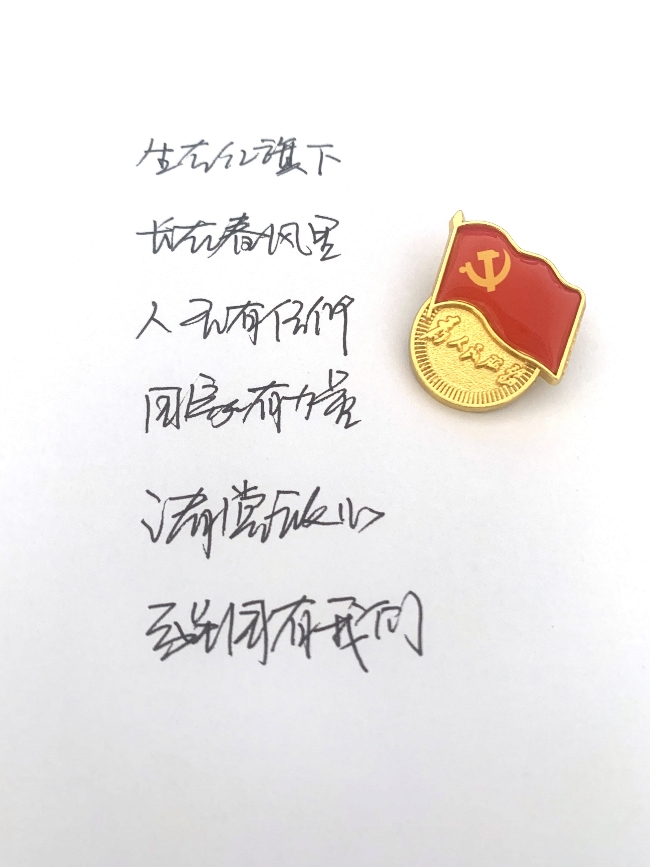 生在红旗下
长在春风里
人民有信仰
国家有力量
请党放心
强国有我们
为人民服务